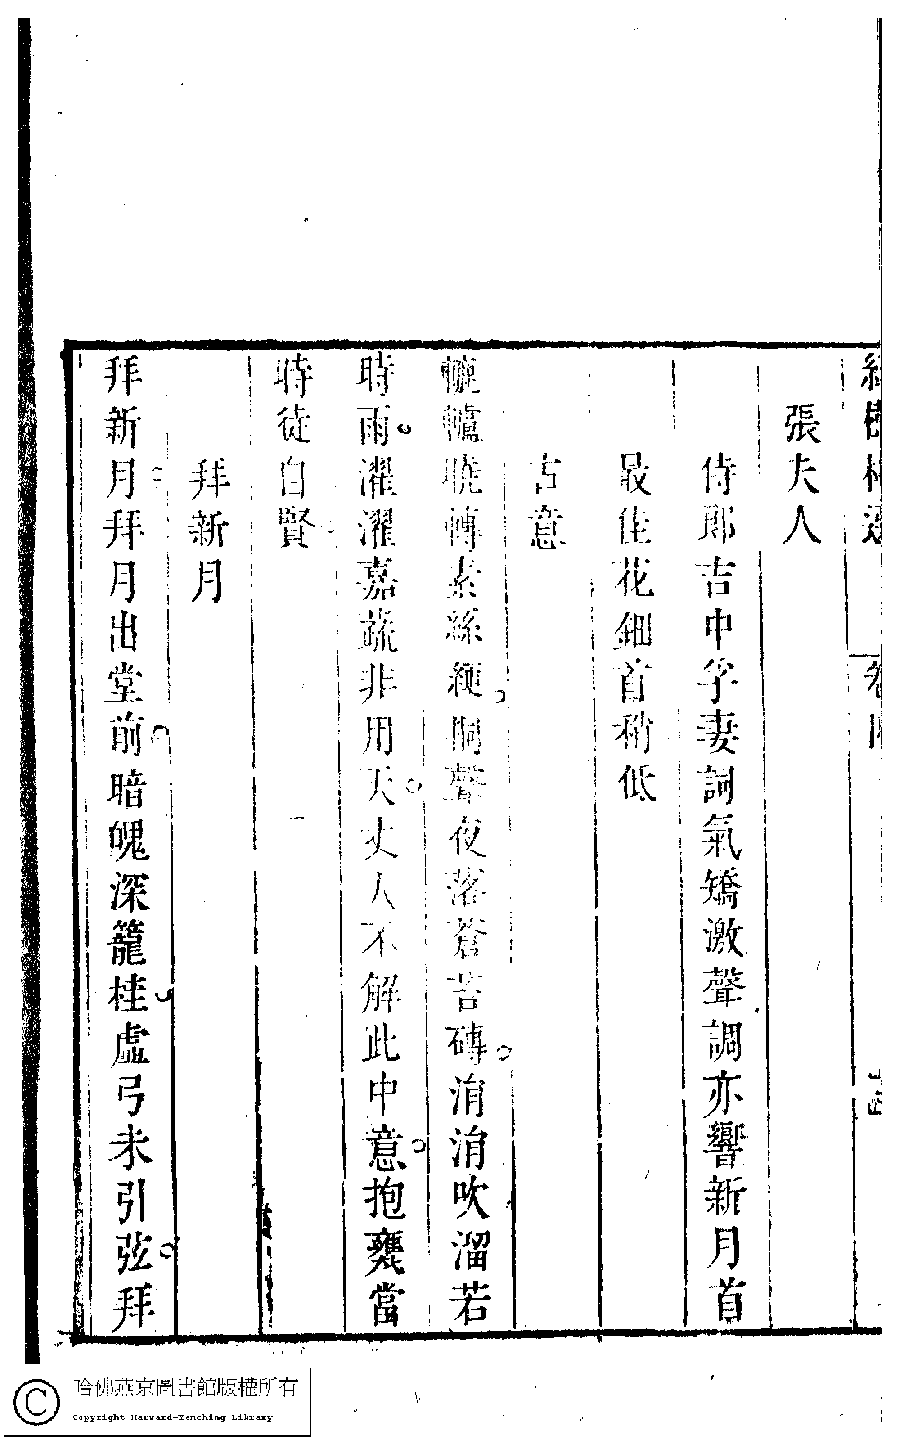 張夫人
侍郎吉中孚妻詞氣矯激聲調亦響新月首
最佳花鈿首稍低
古意
轆轤曉轉素絲綆桐聲夜落蒼苔磚涓涓吹溜若
時雨濯濯嘉蔬非用天丈人不解此中意抱甕當
時徒自賢
拜新月
拜新月拜月出堂前暗魄深籠桂虛弓未引弦拜
哈佛燕京圖書館版權所有
Copyright Harvard-Yenching Library